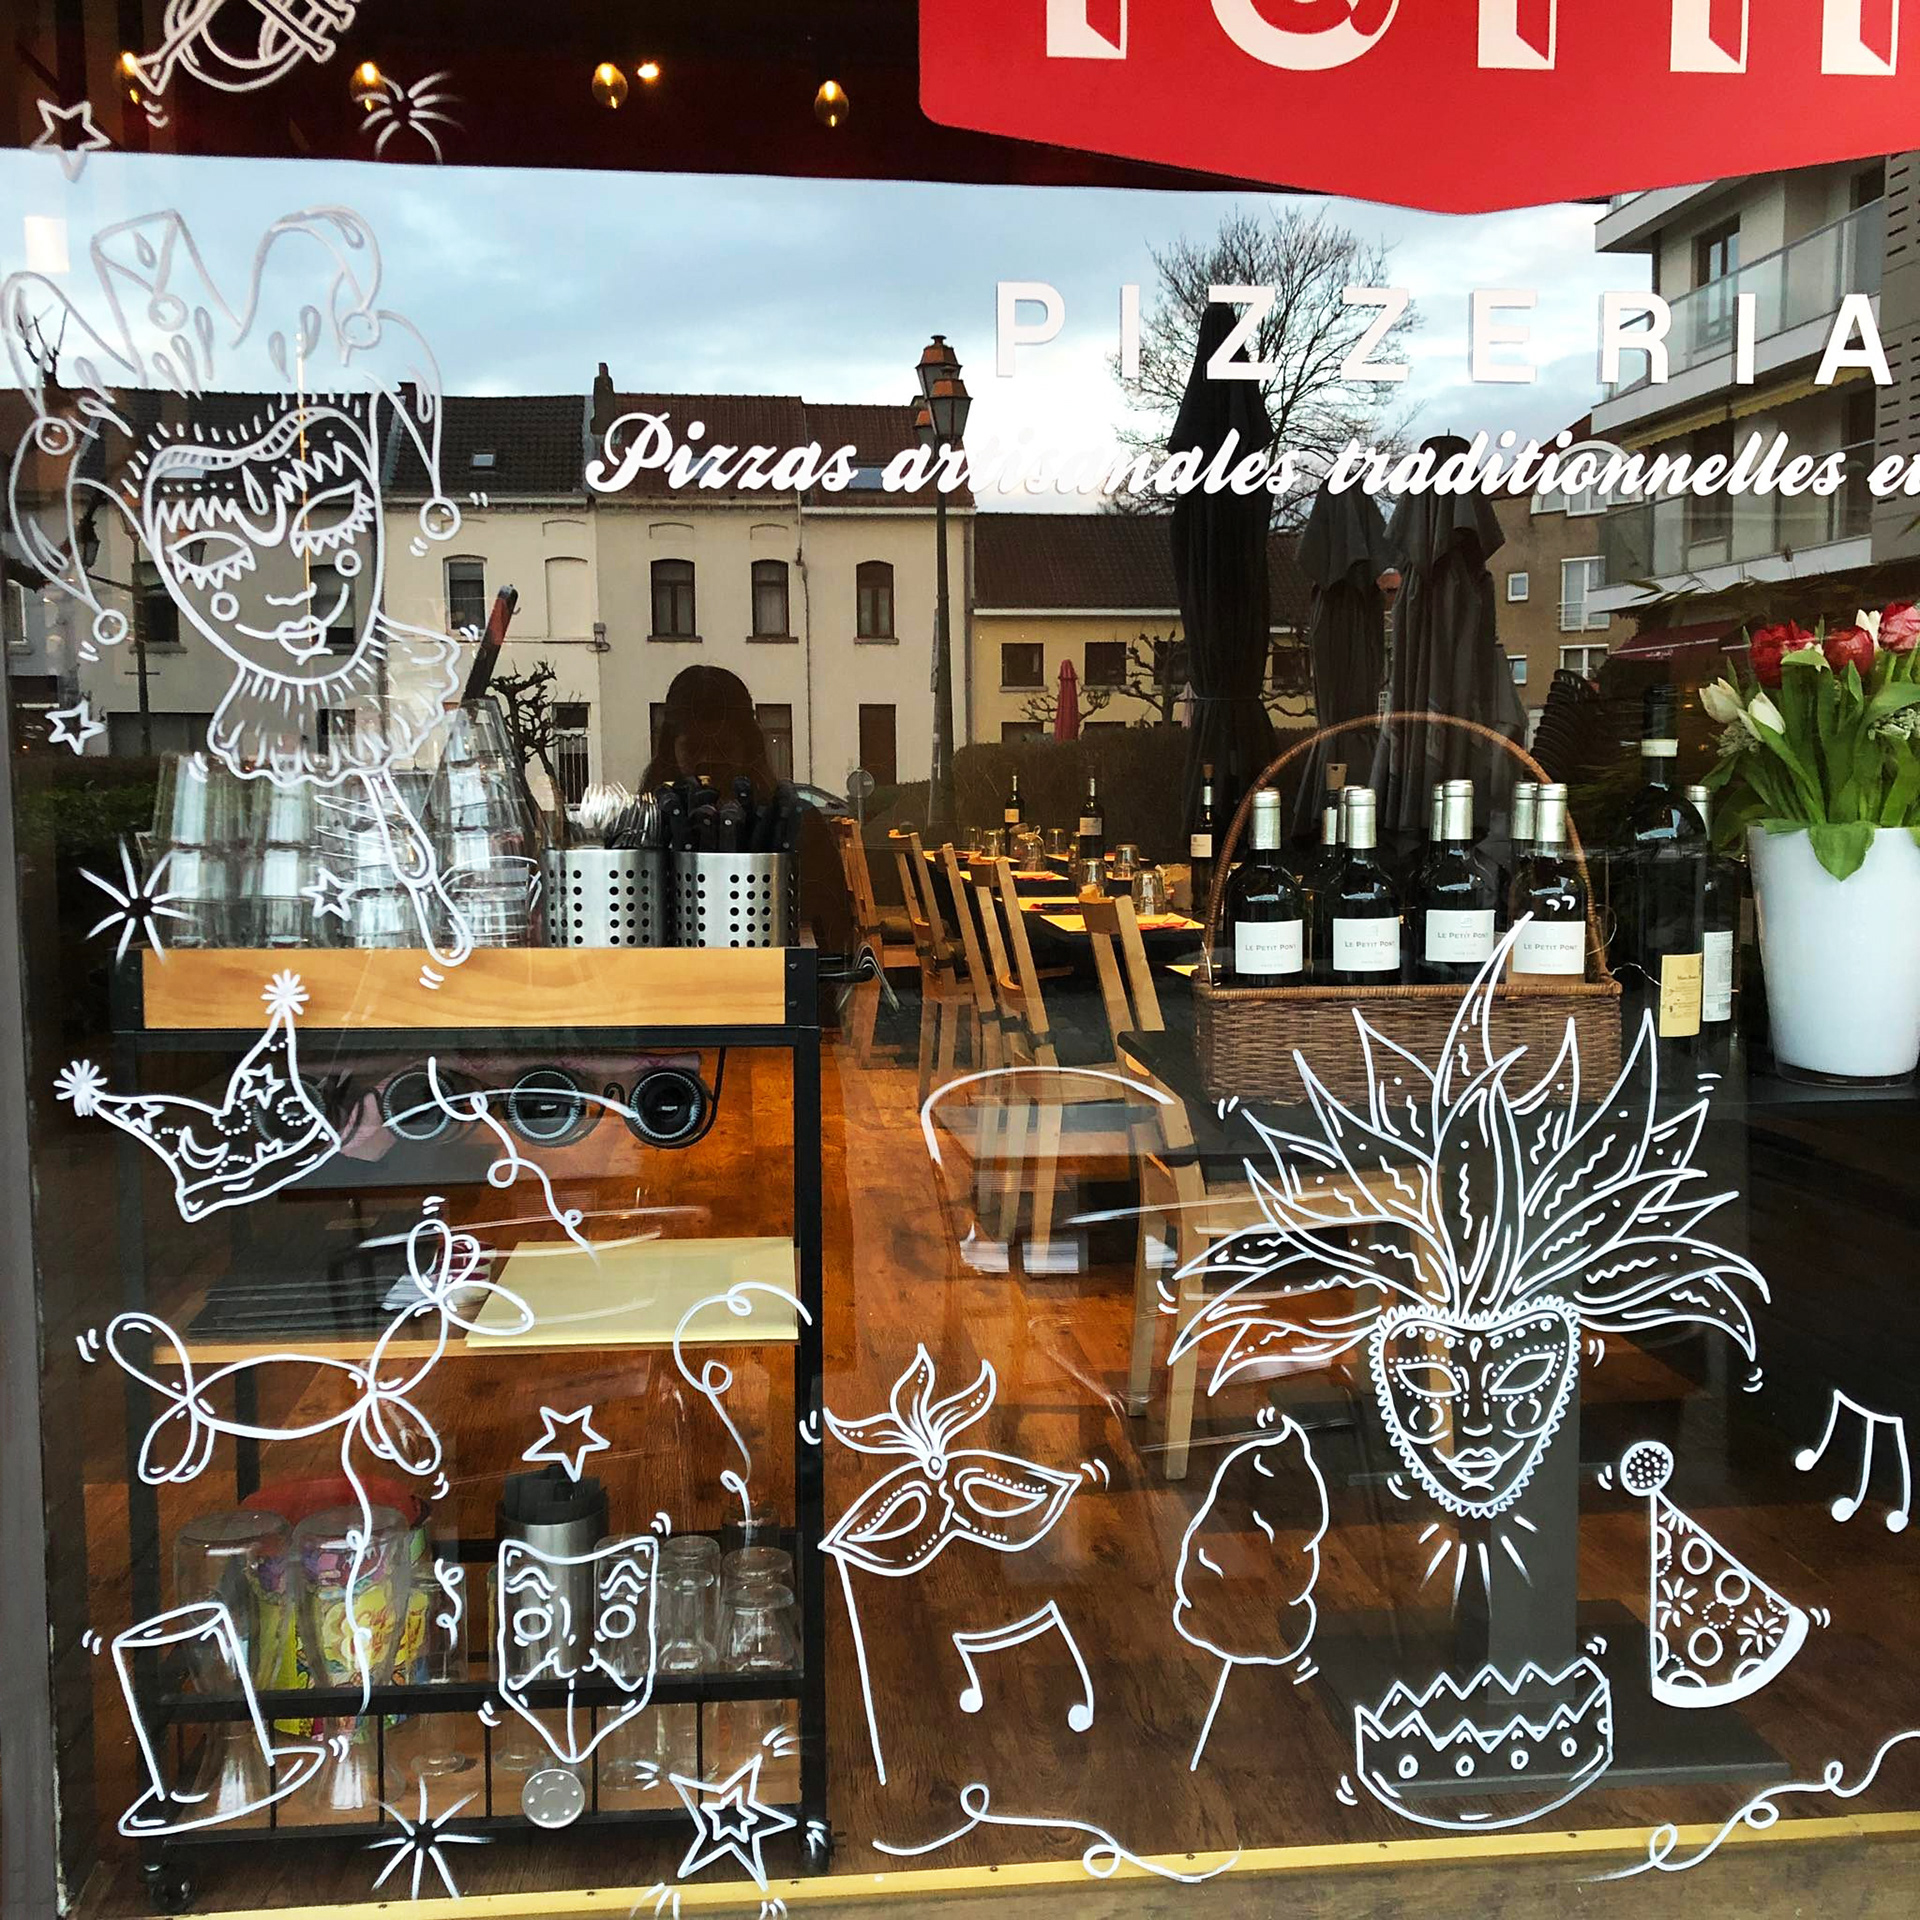 PIZZERIA
Pizzas artisanales traditionnelles et
LE PETIT PONT
LE PETIT PONT
LE PETIT PONT
LE PETIT PONT